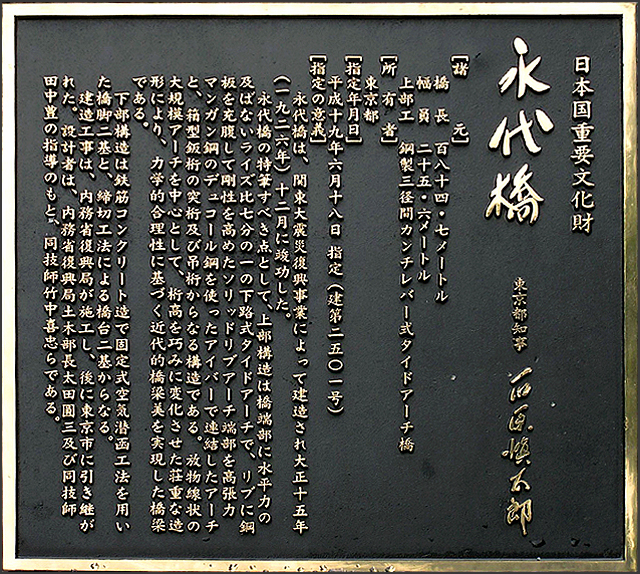 日本国重要文化財
永代橋
東京都知事 石原慎太郎
［諸元］
橋長 百八十四・七メートル
幅員 二十五・六メートル
上部工 鋼製三径間カンチレバー式タイドアーチ橋
［所有者］
東京都
［指定年月日］
平成十九年六月十八日 指定（建第二五〇一号）
［指定の意義］
永代橋は、関東大震災復興事業によって建造され大正十五年
（一九二六年）十二月に竣功した。
永代橋の特筆すべき点として、上部構造は橋端部に水平力の
及ばないライズ比七分の一の下路式タイドアーチで、リブに鋼
板を充腹して剛性を高めたソリッドリブアーチ端部を高張力
マンガン鋼のデュコール鋼を使ったアイバーで連結したアーチ
と、箱型鈑桁の突桁及び吊桁からなる構造である。放物線状の
大規模アーチを中心として、桁高を巧みに変化させた荘重な造
形により、力学的合理性に基づく近代的橋梁美を実現した橋梁
である。
下部構造は鉄筋コンクリート造で固定式空気潜函工法を用い
た橋脚二基と、締切工法による橋台二基からなる。
建造工事は、内務省復興局が施工し、後に東京市に引き継が
れた。設計者は、内務省復興局土木部長太田圓三及び同技師
田中豊の指導のもと、同技師竹中喜忠らである。